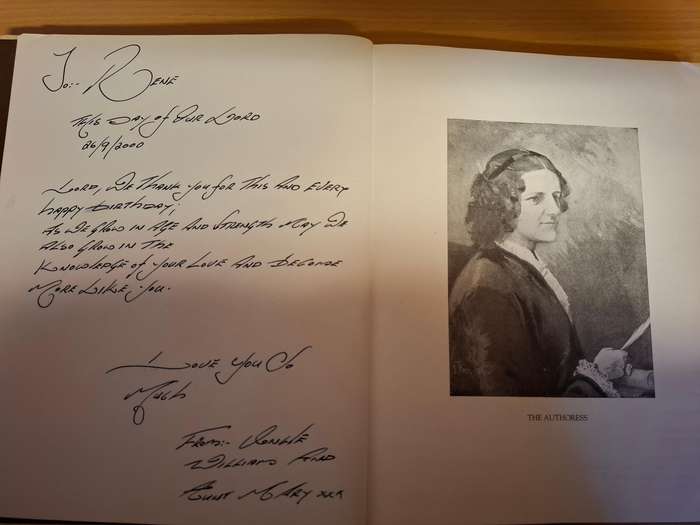 To:- Rene
This Day of Our Lord
26/9/2000
Lord, We Thank you for This And Every
happy Birthday;
As We Grow in Age And Strength May We
Also Grow in The
Knowledge of your Love And Become
More Like you.
Love you So
Much
From:- Uncle
Williams And
Aunt Mary xxx
THE AUTHORESS